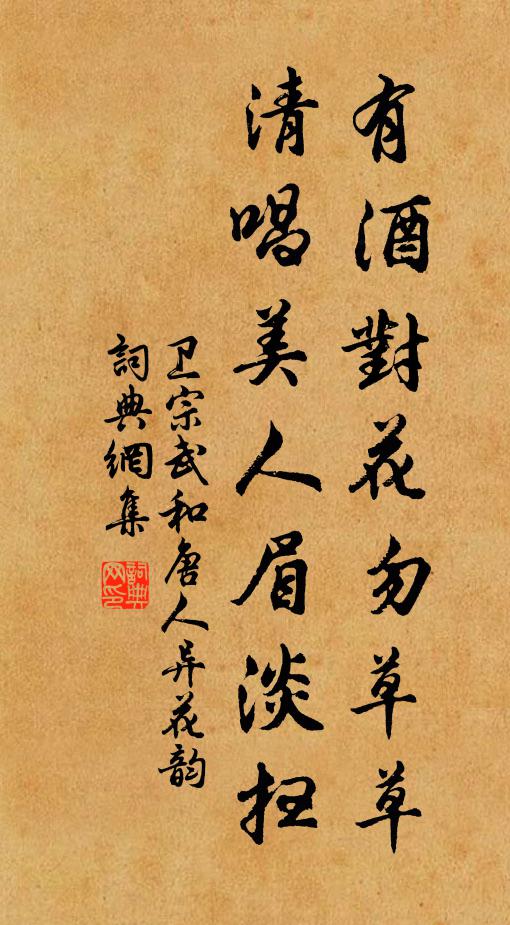 有酒對花勿草草
清唱美人眉淡扫
卫宗武和唐人异花韵
詞典網集
詞典网印